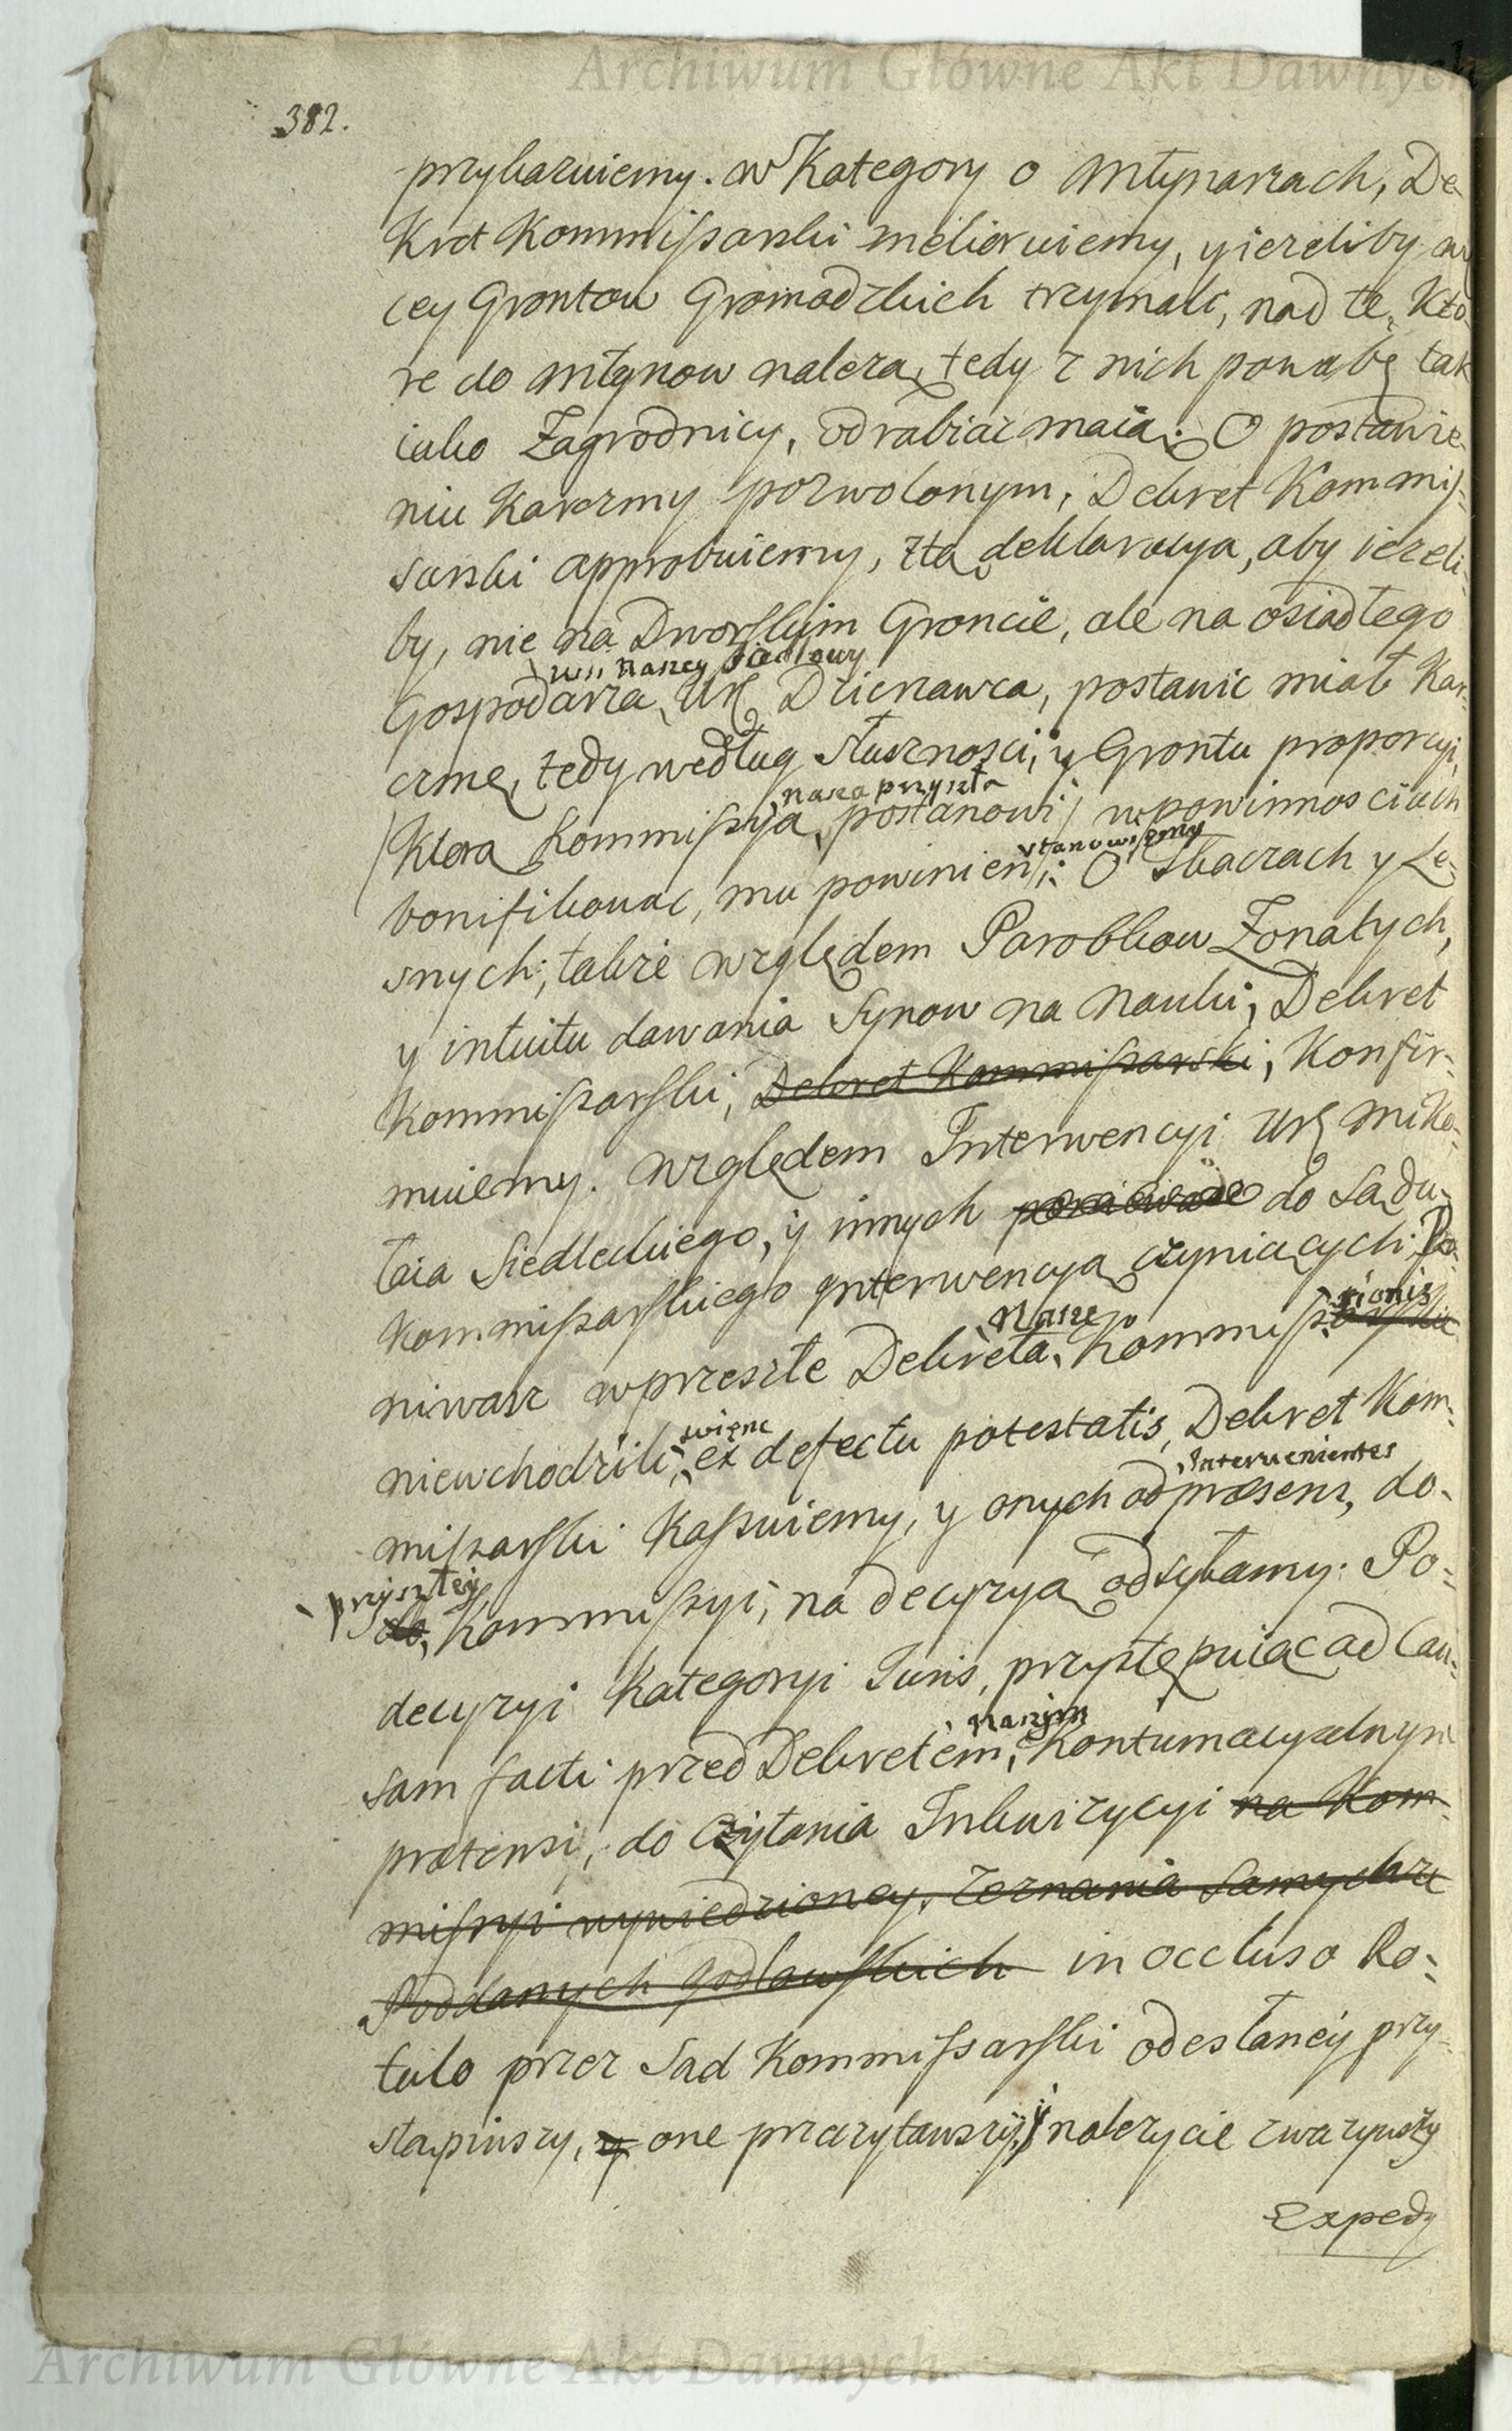 Archiwum Główne Akt Dawnych
382.
przykazuiemy. w Kategory o Młynarzach, De-
kret Kommissarski meliorujemy, y ieżeliby wię
cey Grontow Gromadzkich trzymali, nad te, Kto-
re do Młynow należą, tedy z nich powabę tak
iako Zagrodnicy, odrabiać maią. O postawie-
niu Karczmy pozwolonym, Dekret Kommis-
sarski approbuiemy, z tą deklaracyą, aby ieżeli-
by, nie na Dworskim Groncie, ale na osiadłego
wsi naszey Siedlawy
Gospodarza, Ur. Dzierzawca, postawic miał Kar-
czmę, tedy według słuszności, y Grontu proporcyi,
nasza przyszła
(Ktora Kommissya, postanowi) w powinnosciach
ustanowiemy
bonifikować, mu powinien; O Tkaczach y Le-
snych; takze względem Parobkow Żonatych,
y intuitu dawania Synow na Nauki; Dekret
Kommissarski, Dekret Kommissarski, Konfir-
muiemy. względem Interwencyi Ur. Miko-
łaia Siedleckiego, y innych do Sądu
Kommissarskiego interwencyą czyniących; Po-
Nasze sionis
niwasz w przeszłe Dekreta, Kommiss
więc
niewchodzili, ex defectu potestatis, Dekret Kom-
Intervenientes
missarski Kassuiemy, y onych ad præsens, do-
przyszłey
do, Kommissyi, na decyzyą odsyłamy. Po-
decyzyi Kategoryi Juris, przystępuiąc ad Cau-
naszym
sam facti przed Dekretem, Kontumacyalnym
prætensi, do Czytania Inkwizycyi na Kom-
missyi wywiedzioney, zeznania samychze
Poddanych Godlowskich in occluso Ro-
tulo przez Sąd Kommissarski odesłaney przy-
stąpiwszy, y one przeczytawszy, y należycie zważywszy
Expedy
Archiwum Główne Akt Dawnych